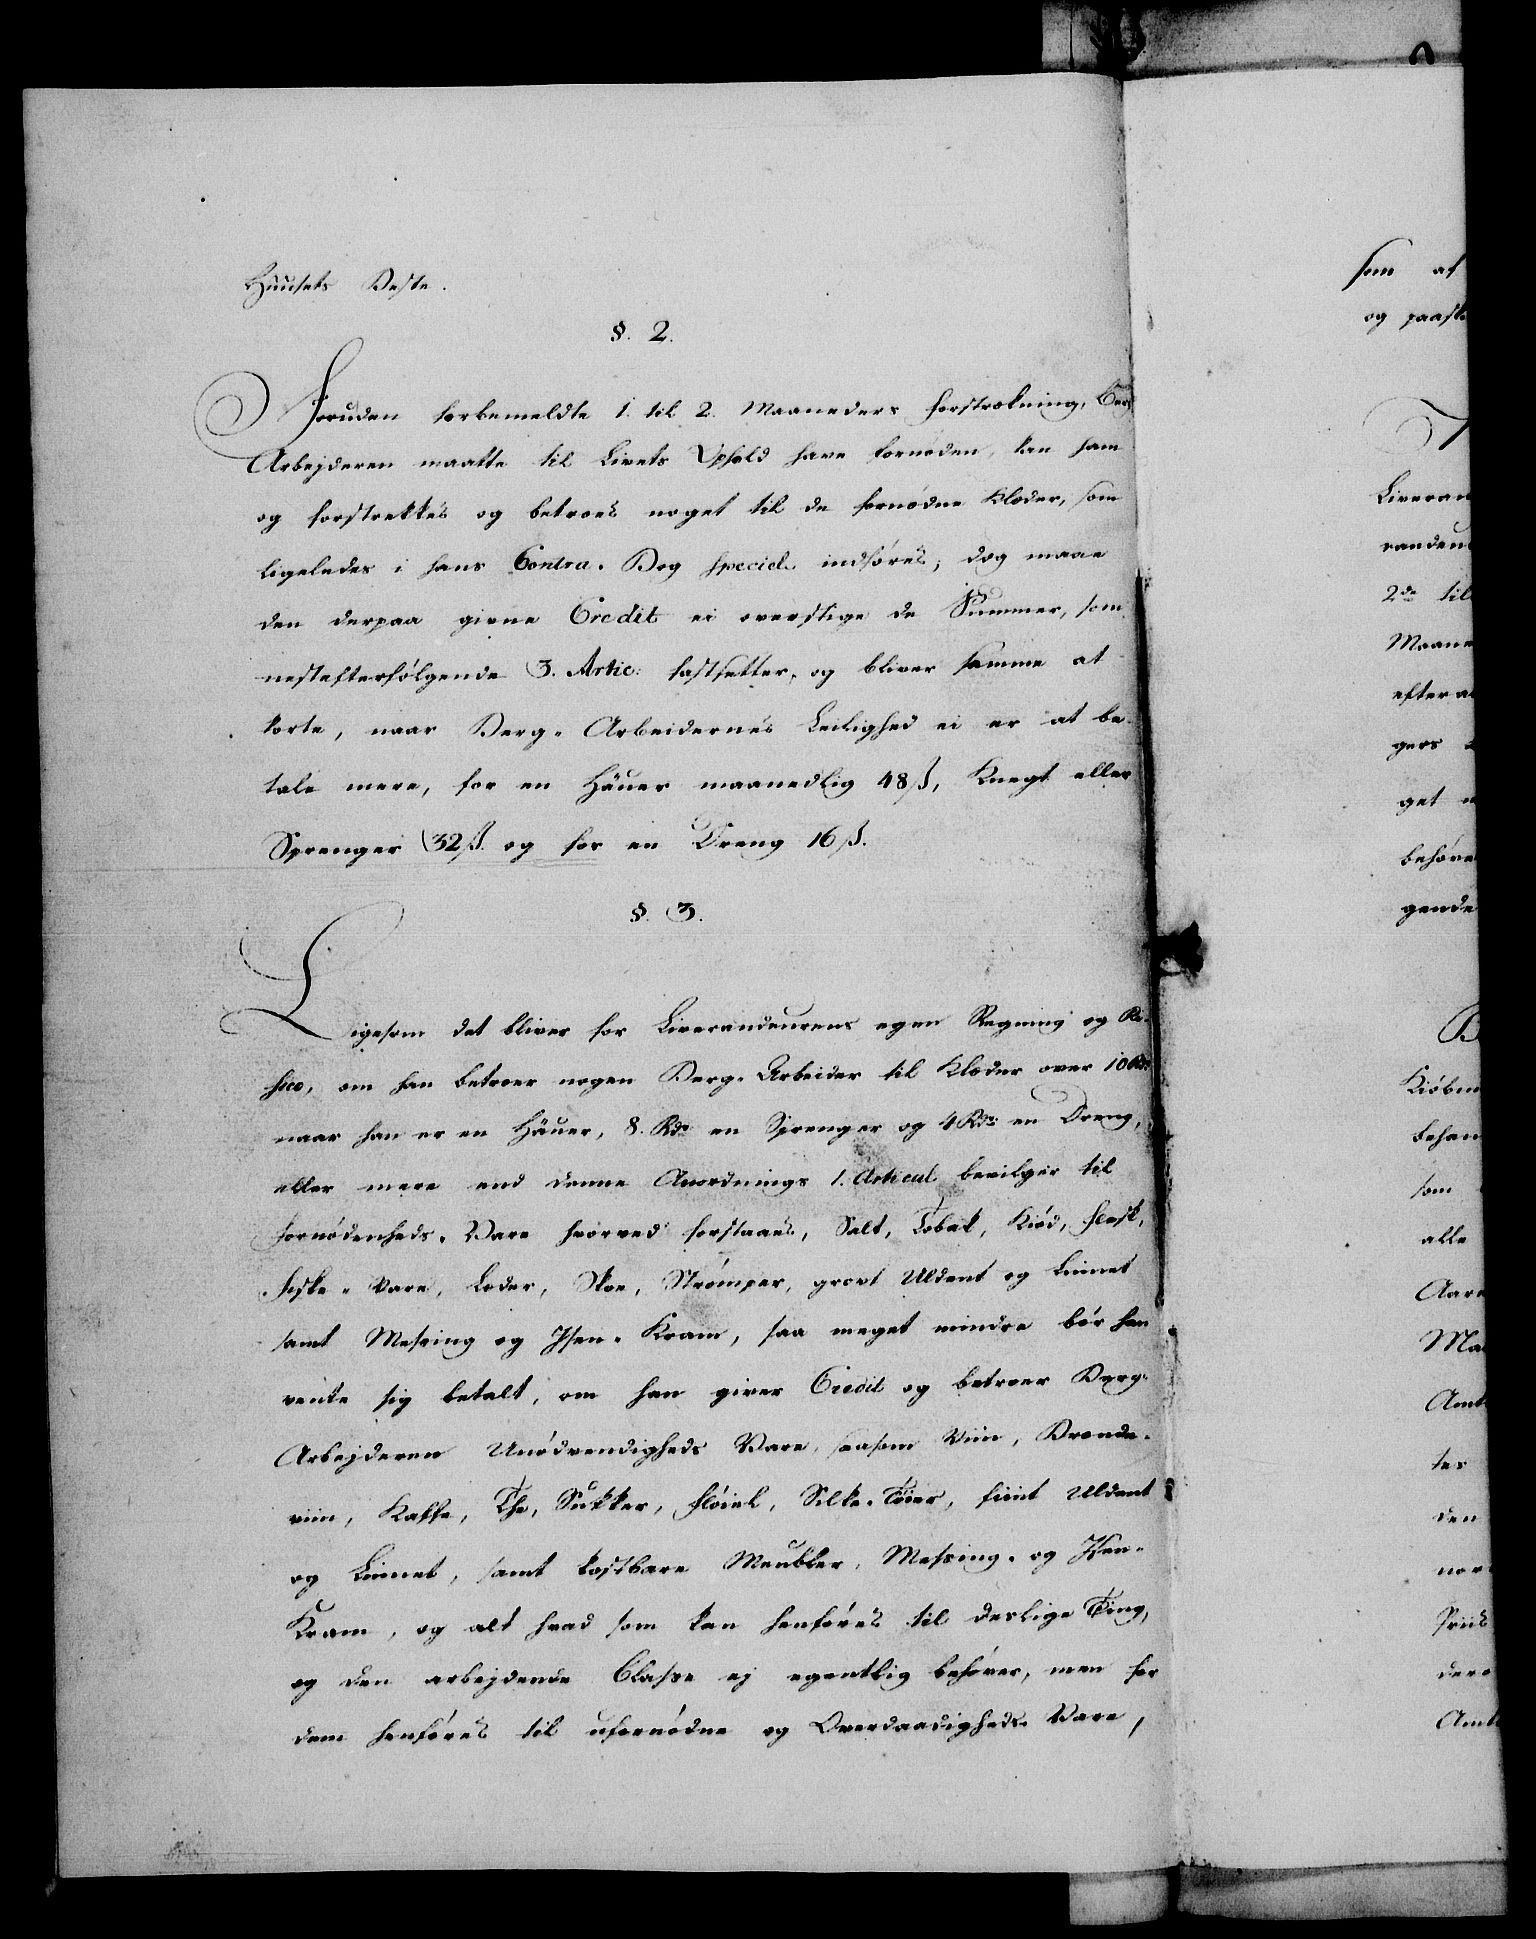 Huusets Beste.
§. 2.
Foruden forbemeldte 1. til 2. Maaneders Forstrækning, Berg
Arbejderen maatte til Livets Ophold have fornøden, kan ham
og forstrekkes og betroes noget til de fornødne Klæder, som
ligeledes i hans Contra-Bog speciel indføres; dog maae
den derpaa givne Credit ei overstige de Summer, som
nestefterfølgende 3. Artic: fastsetter, og bliver samme at
korte, naar Berg-Arbeidernes Leilighed ei er at be-
tale mere, for en Häuer maanedlig 48 ß, Knegt eller
Sprenger 32 ß. og for en Dreng 16 ß.
§. 3.
Ligesom det bliver for Liverandeurens egen Regning og Re-
sico, om han betroer nogen Berg-Arbeider til Klæder over 10 Rdr
naar han er en Häuer, 8. Rdr en Sprenger og 4 Rdr en Dreng,
eller mere end denne Anordnings 1. Articul bevilger til
Fornødenheds-Vare hvorved forstaaes, Salt, Tobak, Kiød, Flesk,
Fiske-Vare, Læder, Skoe, Strømper, grovt Uldent og Linnet
samt Messing og Isen-Kram, saa meget mindre bør han
vente sig betalt, om han giver Credit og betroer Berg-
Arbejderen Unødvendigheds Vare, saasom Viin, Brende-
viin, Kaffe, The, Sukker, Fløiel, Silke-Tøier, fiint Uldent
og Linnet, samt kostbare Meubler, Messing- og Isen-
Kram, og alt hvad som kan henføres til deslige Ting,
og den arbejdende Classe ej egentlig behøver, men for
dem henføres til ufornødne og Overdaadigheds Vare,
som af
og paast
Liveran
randeu
2de til
Maane
efter a
gers
get
behøve
gende
Kiøbm
behan
som
alle
Aar
Ma
Amt
ter
den
nor
Priis
der
Amt